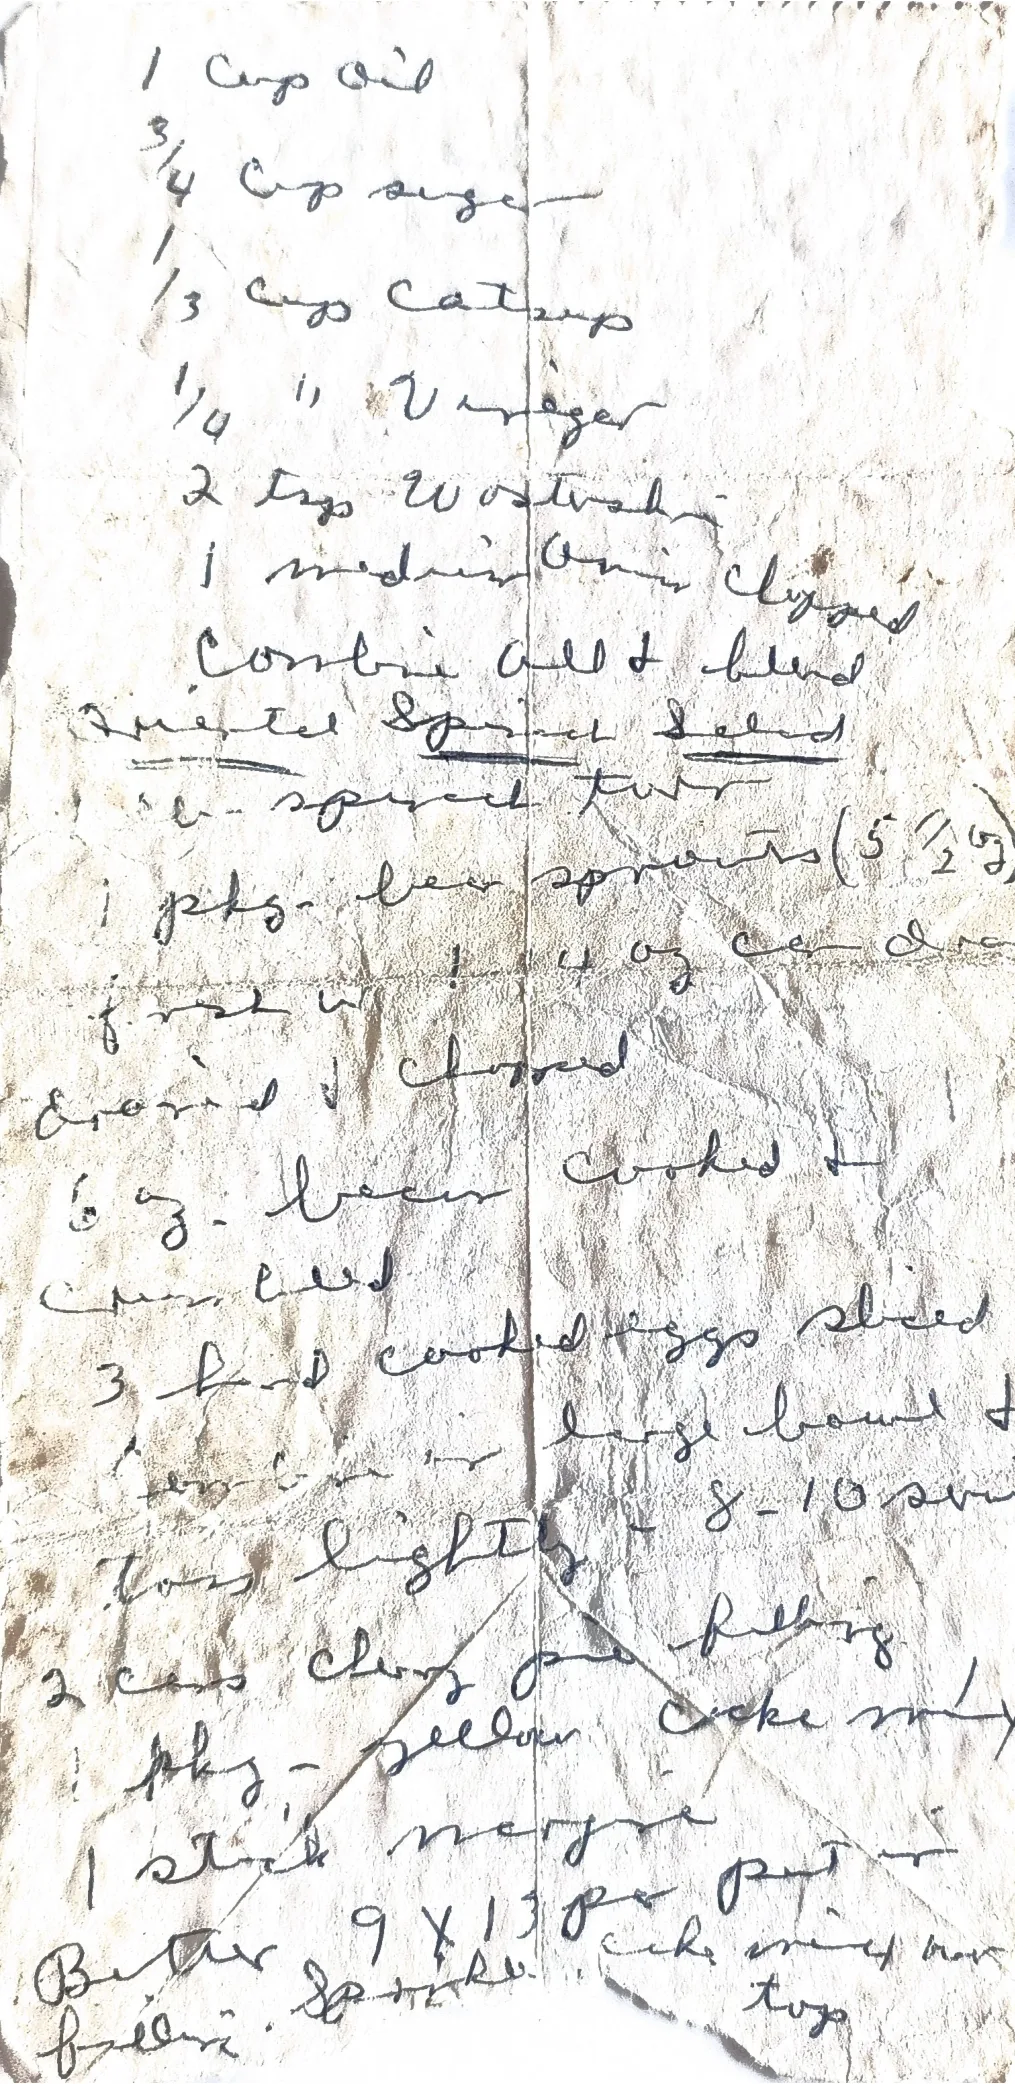 1 Cup Oil
3/4 Cup sugar
1/3 Cup Catsup
1/4 " Vinegar
2 tsp Wostershi
1 medium Onion Chopped
Combine all & blend
Oriental Spinach Salad
1 lb. spinach torn
1 pkg. bean sprouts (5 1/2 oz)
fresh 1 4 oz can dra
drained & chopped
6 oz. bacon cooked &
crumbled
3 hard cooked eggs sliced
Combine in large bowl &
Toss lightly - 8-10 servi
2 cans cherry pie filling
1 pkg - yellow cake mix
1 stick margine
Butter 9 X 13 pan put in
fillin. Sprinkle cake mix over
top